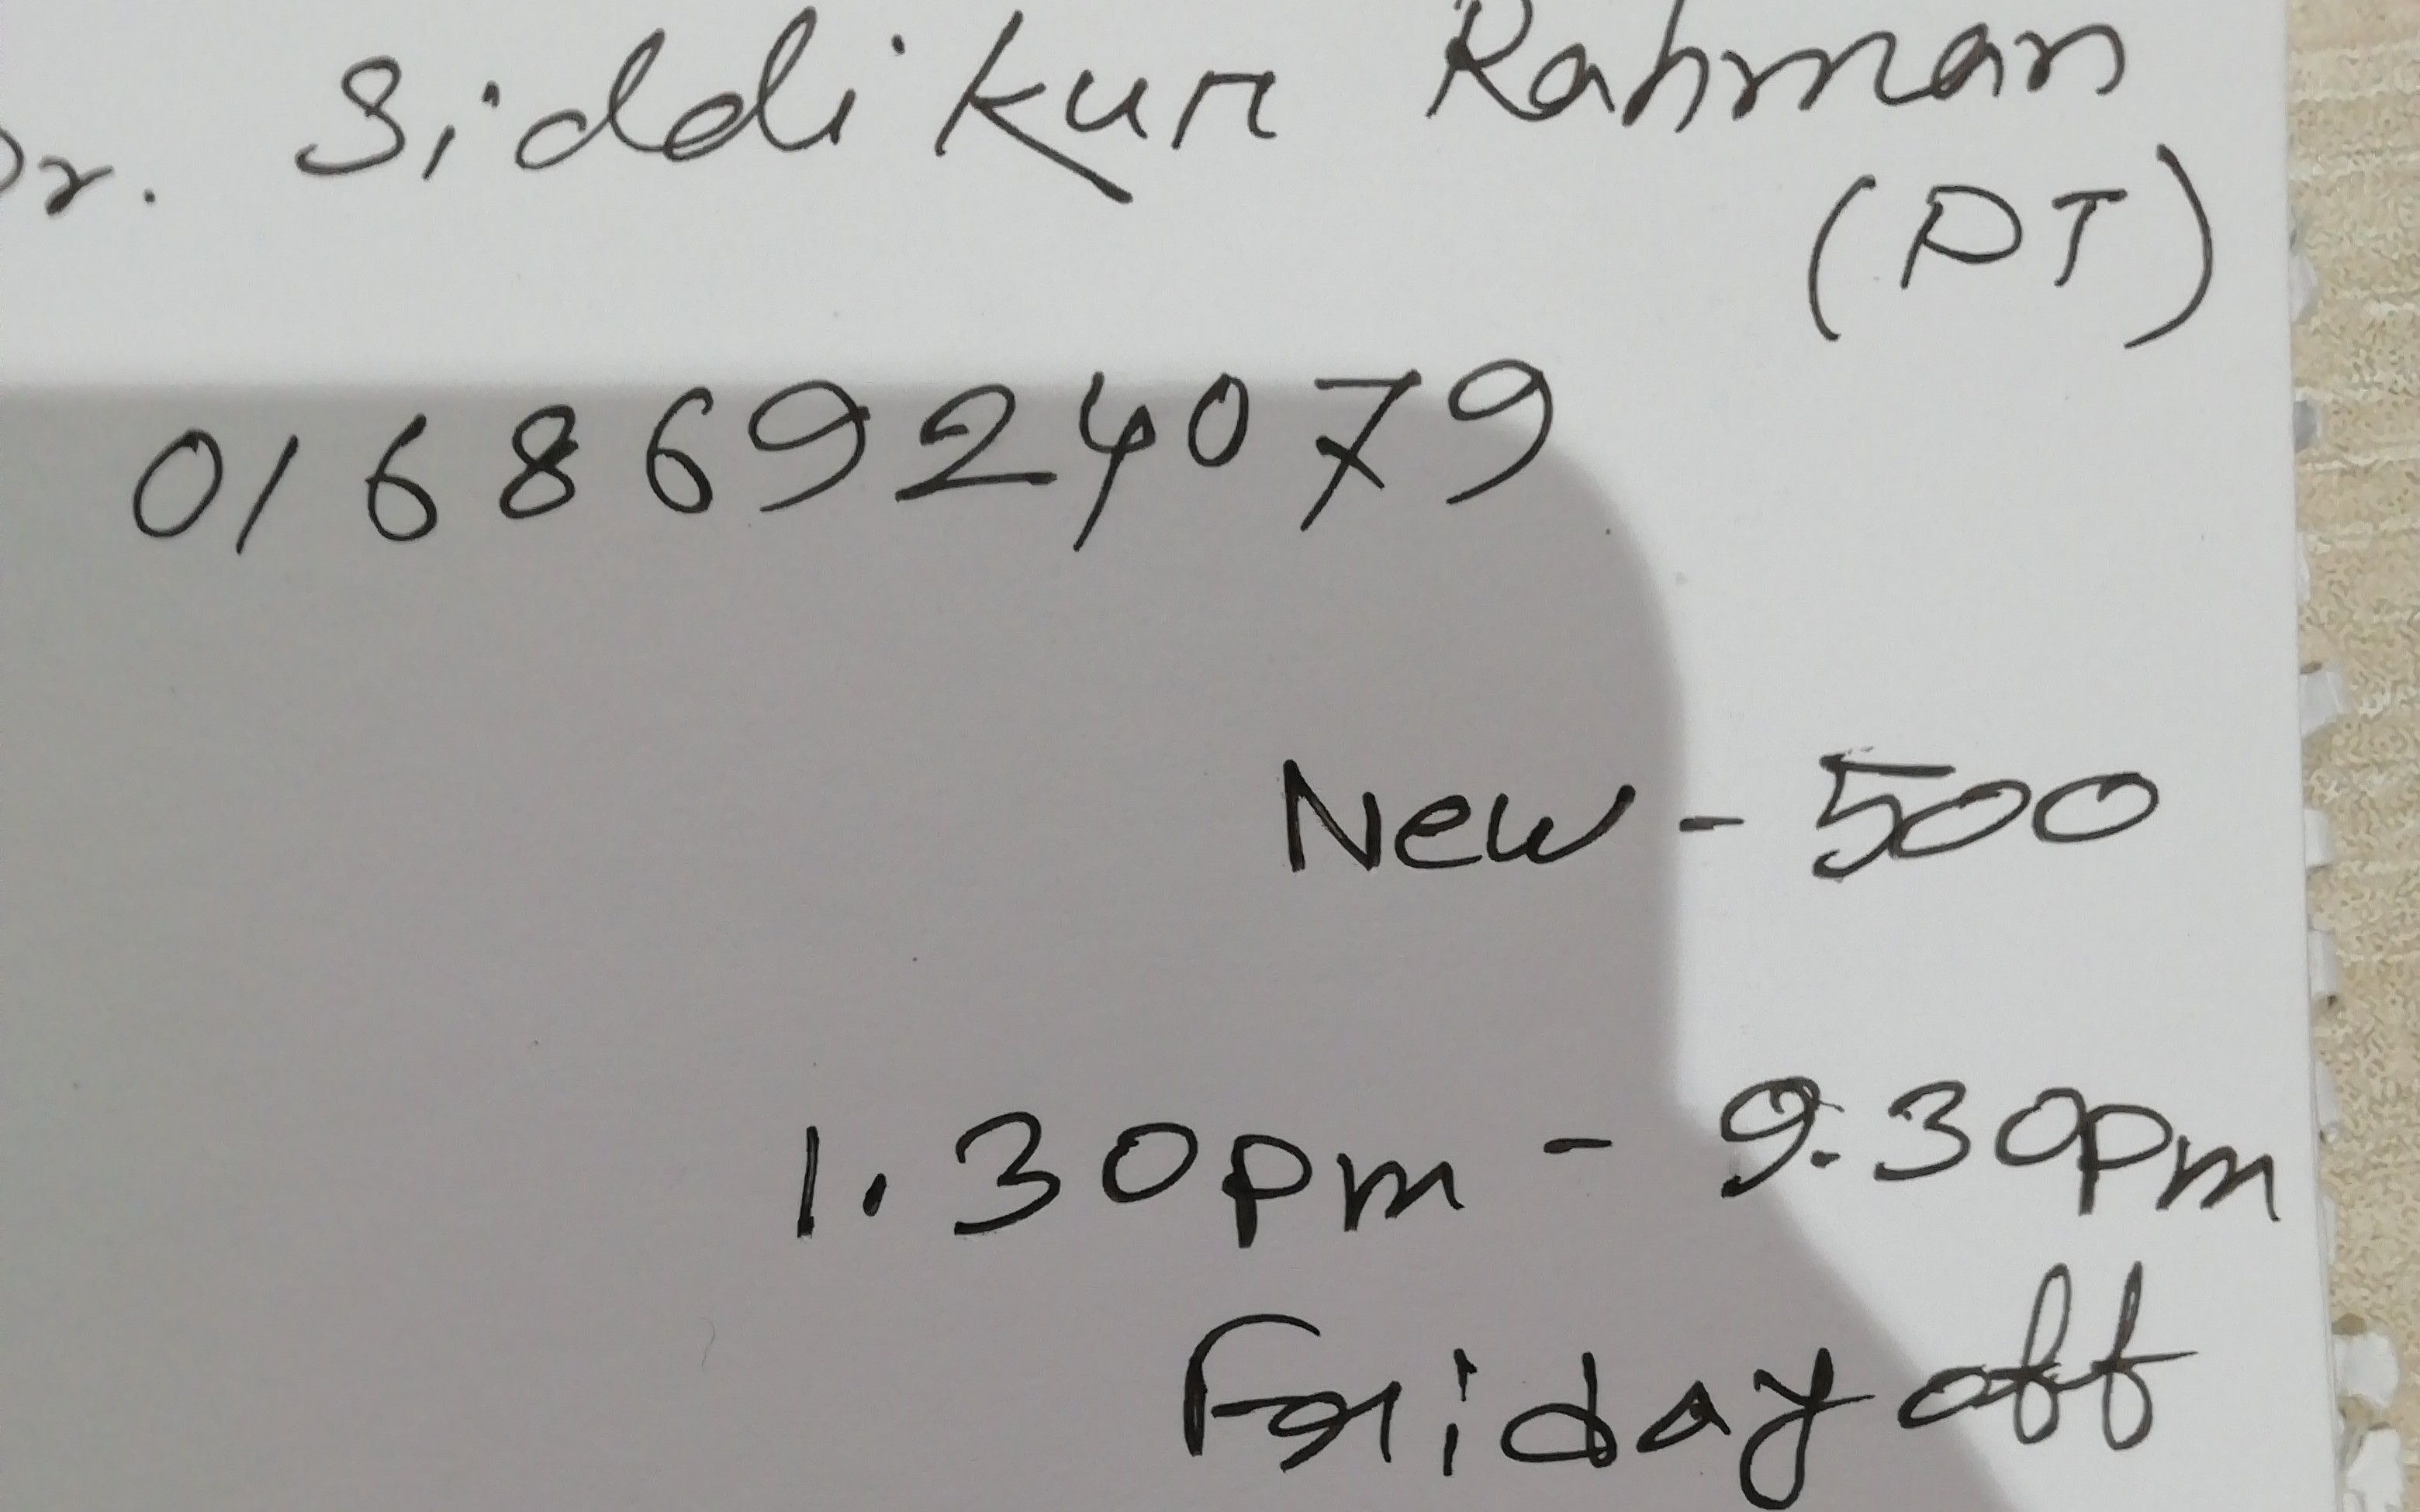 Dr. Siddikur Rahman
(PT)
01686924079
New - 500
1.30pm - 9.30pm
Friday off